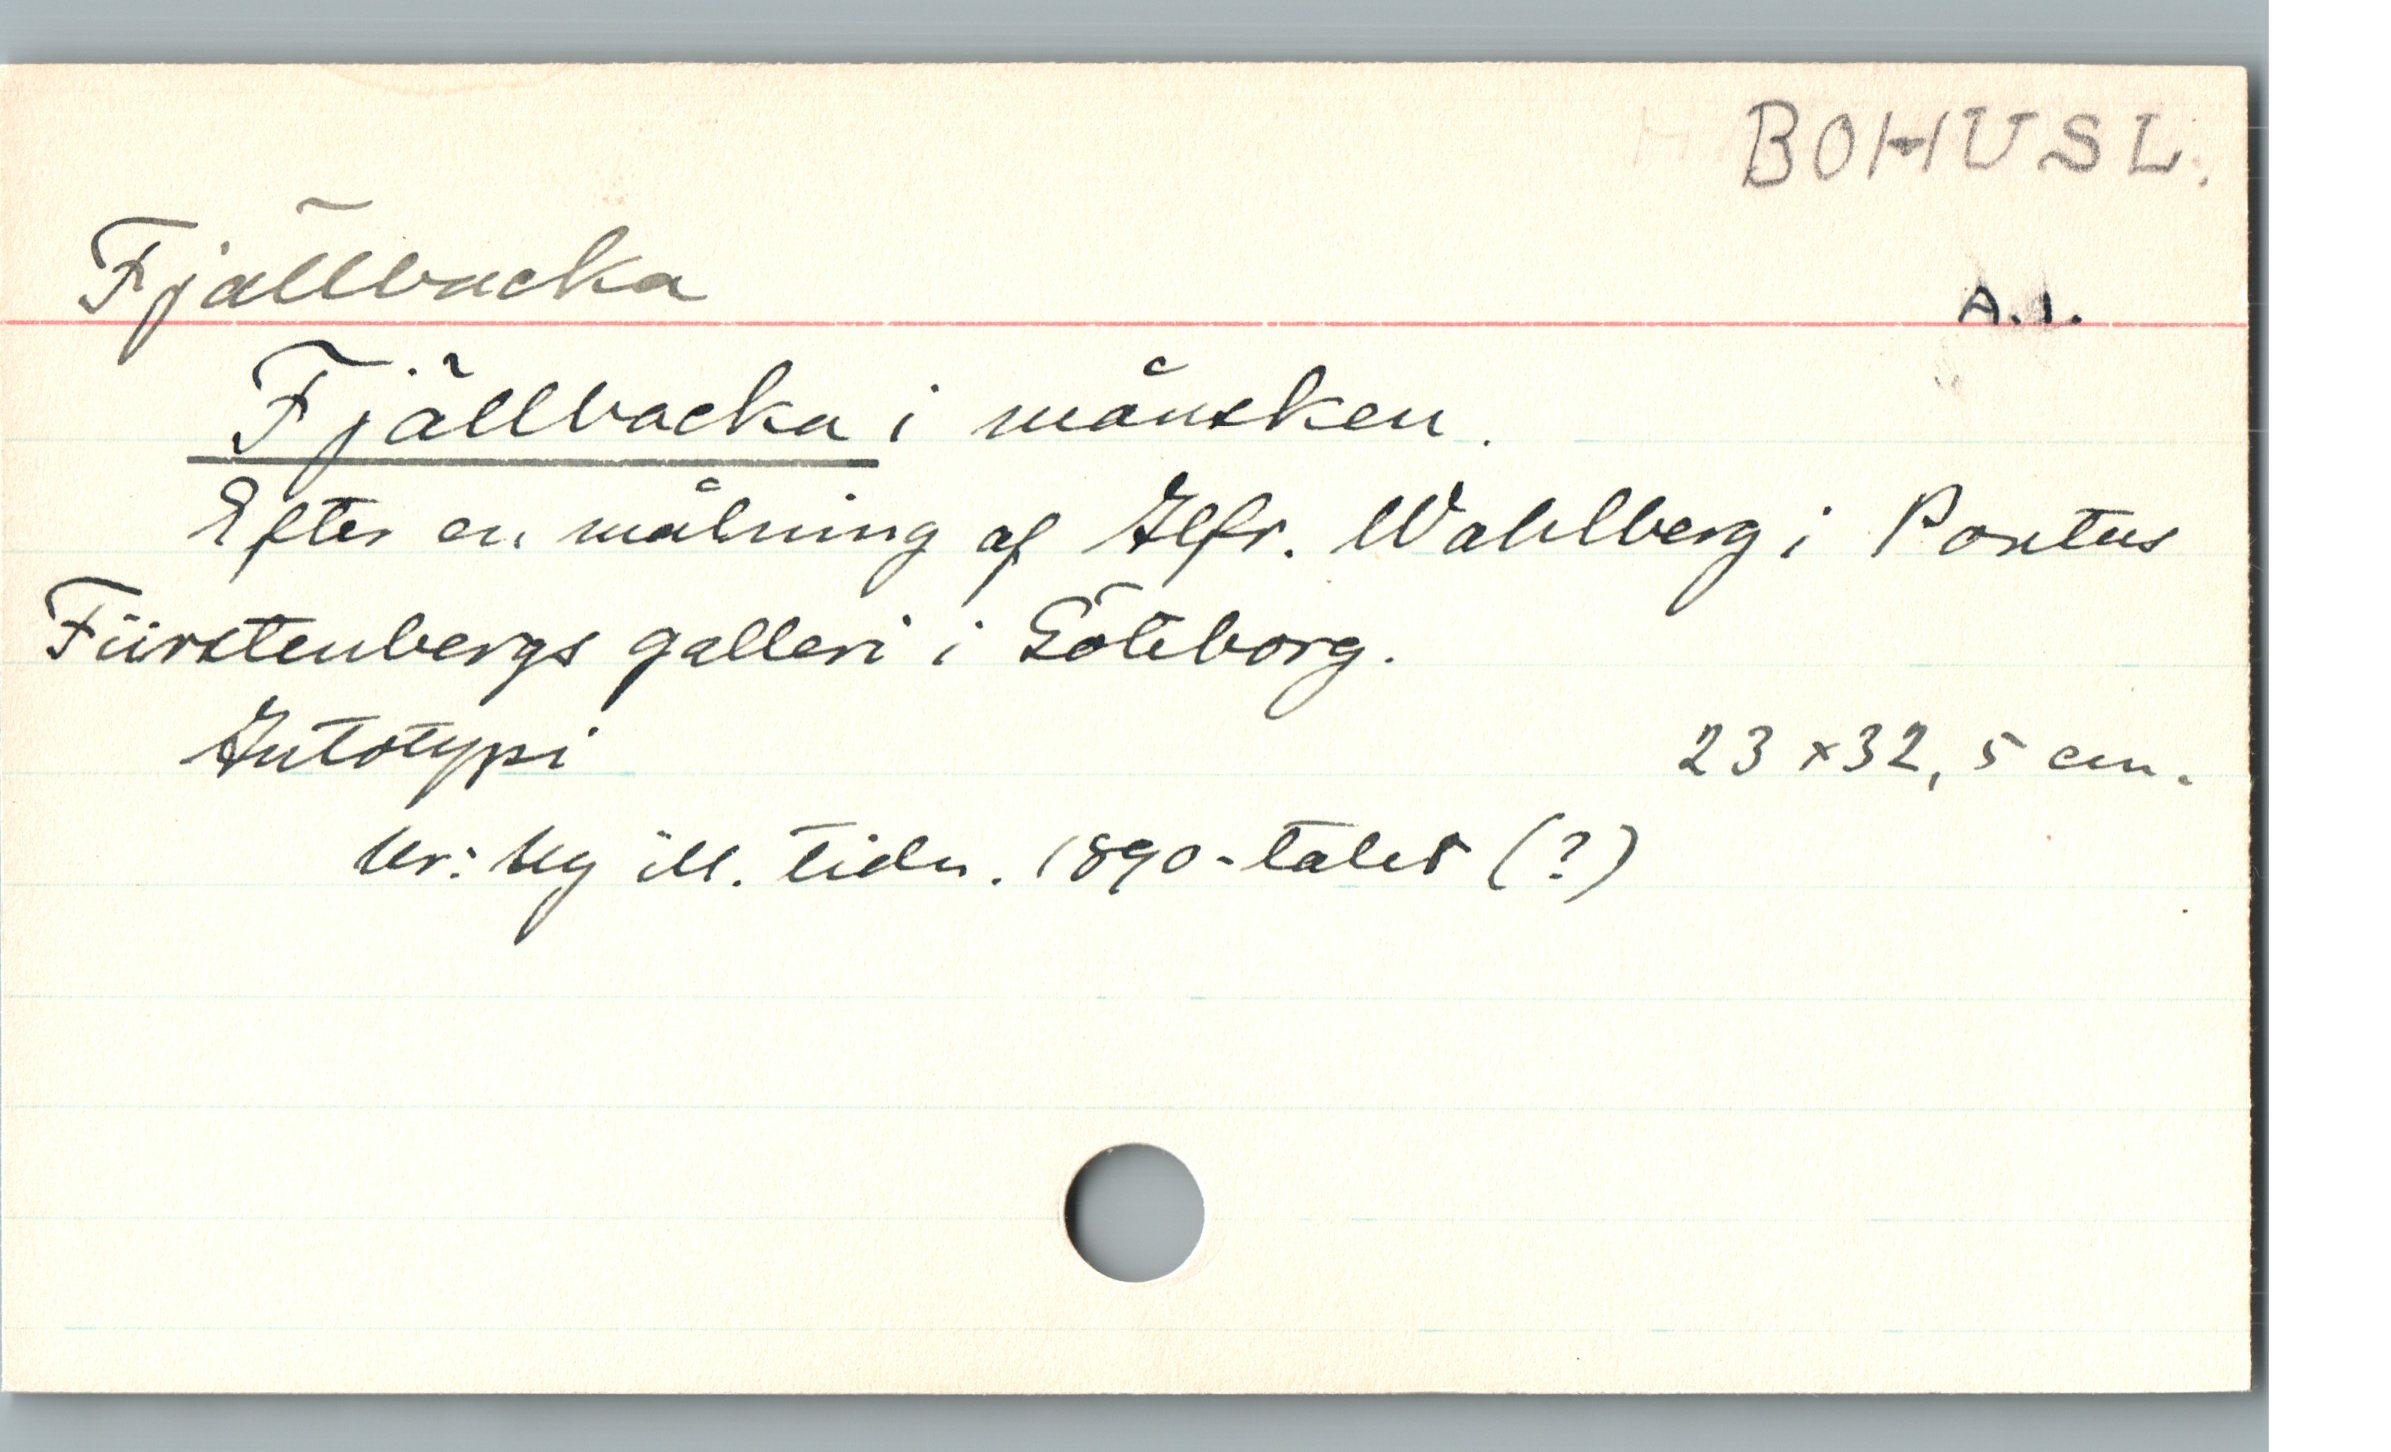 BOHUSL.
Fjällbacka
A.1.
Fjällbacka i månsken.
Efter en målning af Alfr. Wahlberg i Pontus
Fürstenbergs galleri i Göteborg.
Autotypi 23 x 32,5 cm.
Ur: Ny ill. tidn. 1890-talet (?)